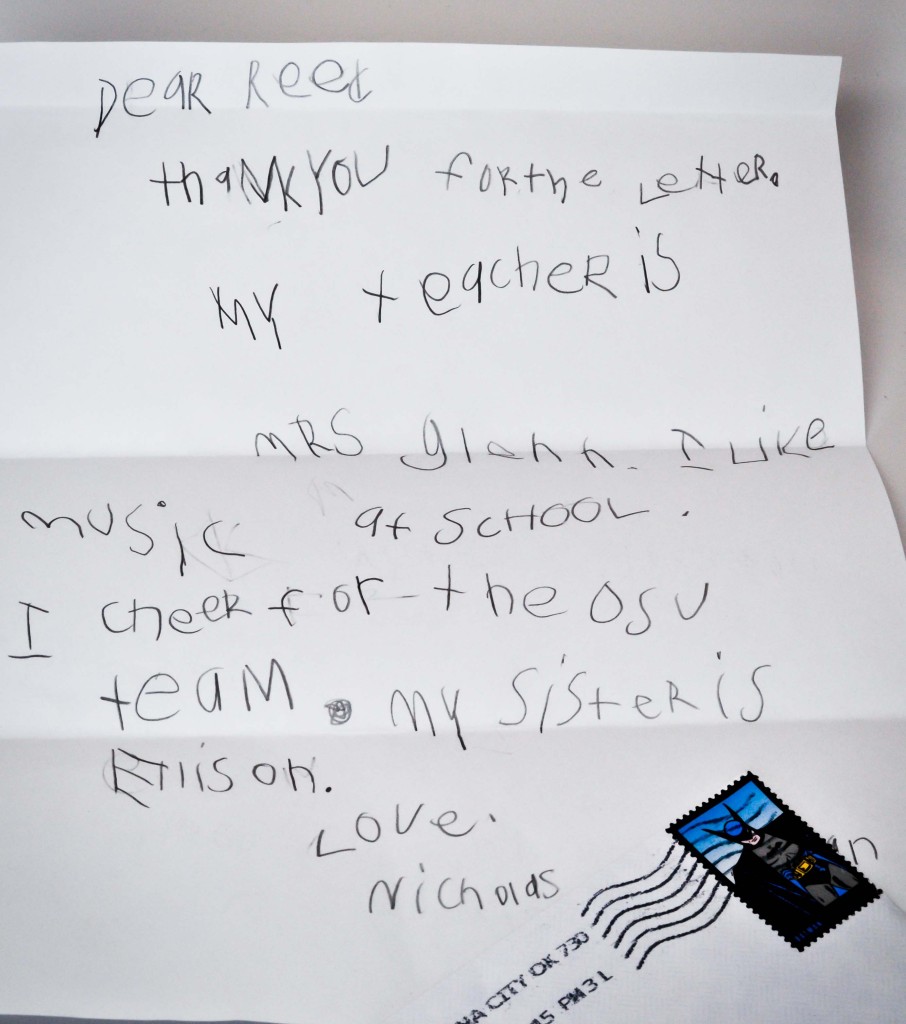 DEAR REED
thANKYOU forthe LetteR.
MY teacheR is
MRS glenn. I LIKE
MUSIC at SCHOOL.
I cheeR for the OSU
teAM. MY SisteR is
Ellison.
LOVE.
Nicholas
CITY OK 730
15 PM 3 L